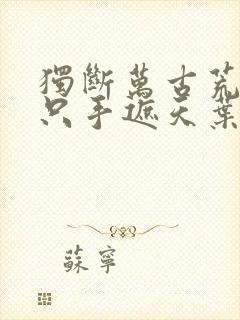 獨斷萬古荒
只手遮天葉
蘇寧